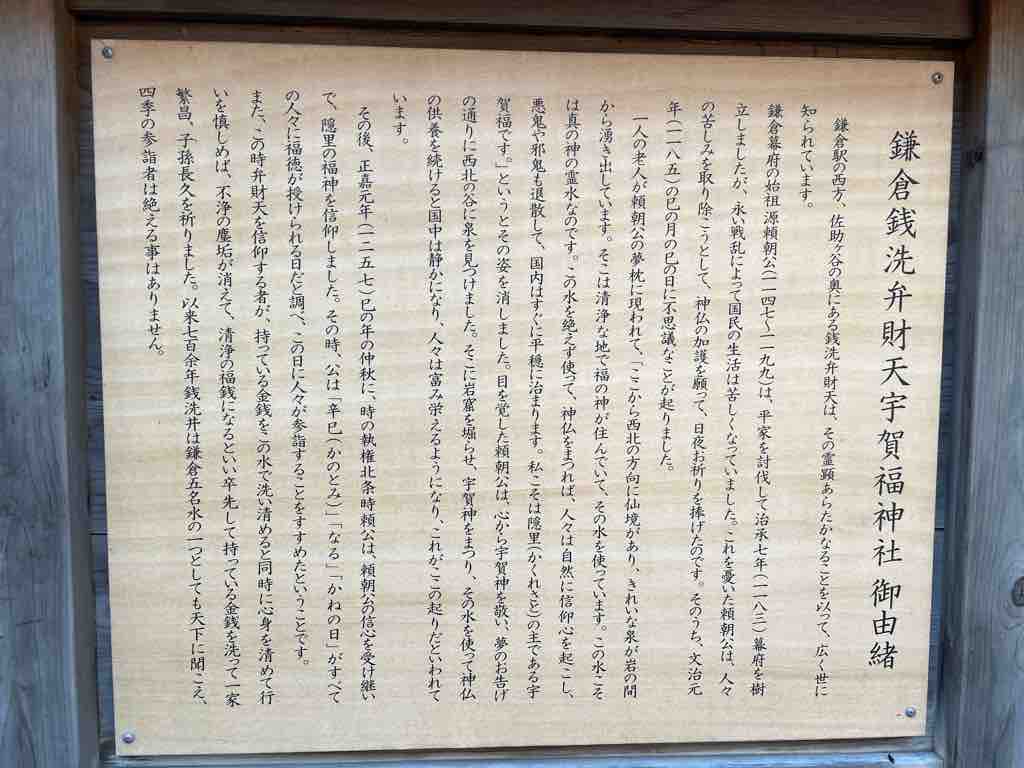 鎌倉銭洗弁財天宇賀福神社 御由緒
鎌倉駅の西方、佐助ヶ谷の奥にある銭洗弁財天は、その霊顕あらたかなることを以って、広く世に
知られています。
鎌倉幕府の始祖 源頼朝公(一一四七〜一一九九)は、平家を討伐して治承七年(一一八三)幕府を樹
立しましたが、永い戦乱によって国民の生活は苦しくなっていました。これを憂いた頼朝公は、人々
の苦しみを取り除こうとして、神仏の加護を願って、日夜お祈りを捧げたのです。そのうち、文治元
年(一一八五)の巳の月の巳の日に不思議なことが起りました。
一人の老人が頼朝公の夢枕に現われて、「ここから西北の方向に仙境があり、きれいな泉が岩の間
から湧き出しています。そこは清浄な地で福の神が住んでいて、その水を使っています。この水こそ
は真の神の霊水なのです。この水を絶えず使って、神仏をまつれば、人々は自然に信仰心を起こし、
悪鬼や邪鬼も退散して、国内はすぐに平穏に治まります。私こそは隠里(かくれざと)の主である宇
賀福です。」というとその姿を消しました。目を覚した頼朝公は、心から宇賀神を敬い、夢のお告げ
の通りに西北の谷に泉を見つけました。そこに岩窟を堀らせ、宇賀神をまつり、その水を使って神仏
の供養を続けると国中は静かになり、人々は富み栄えるようになり、これがこの起りだといわれて
います。
その後、正嘉元年(一二五七)巳の年の仲秋に、時の執権北条時頼公は、頼朝公の信心を受け継い
で、隠里の福神を信仰しました。その時、公は「辛巳(かのとみ)」「なる」「かねの日」がすべて
の人々に福徳が授けられる日だと調べ、この日に人々が参詣することをすすめたということです。
また、この時弁財天を信仰する者が、持っている金銭をこの水で洗い清めると同時に心身を清めて行
いを慎しめば、不浄の塵垢が消えて、清浄の福銭になるといい卒先して持っている金銭を洗って一家
繁昌、子孫長久を祈りました。以来七百余年銭洗井は鎌倉五名水の一つとしても天下に聞こえ、
四季の参詣者は絶える事はありません。